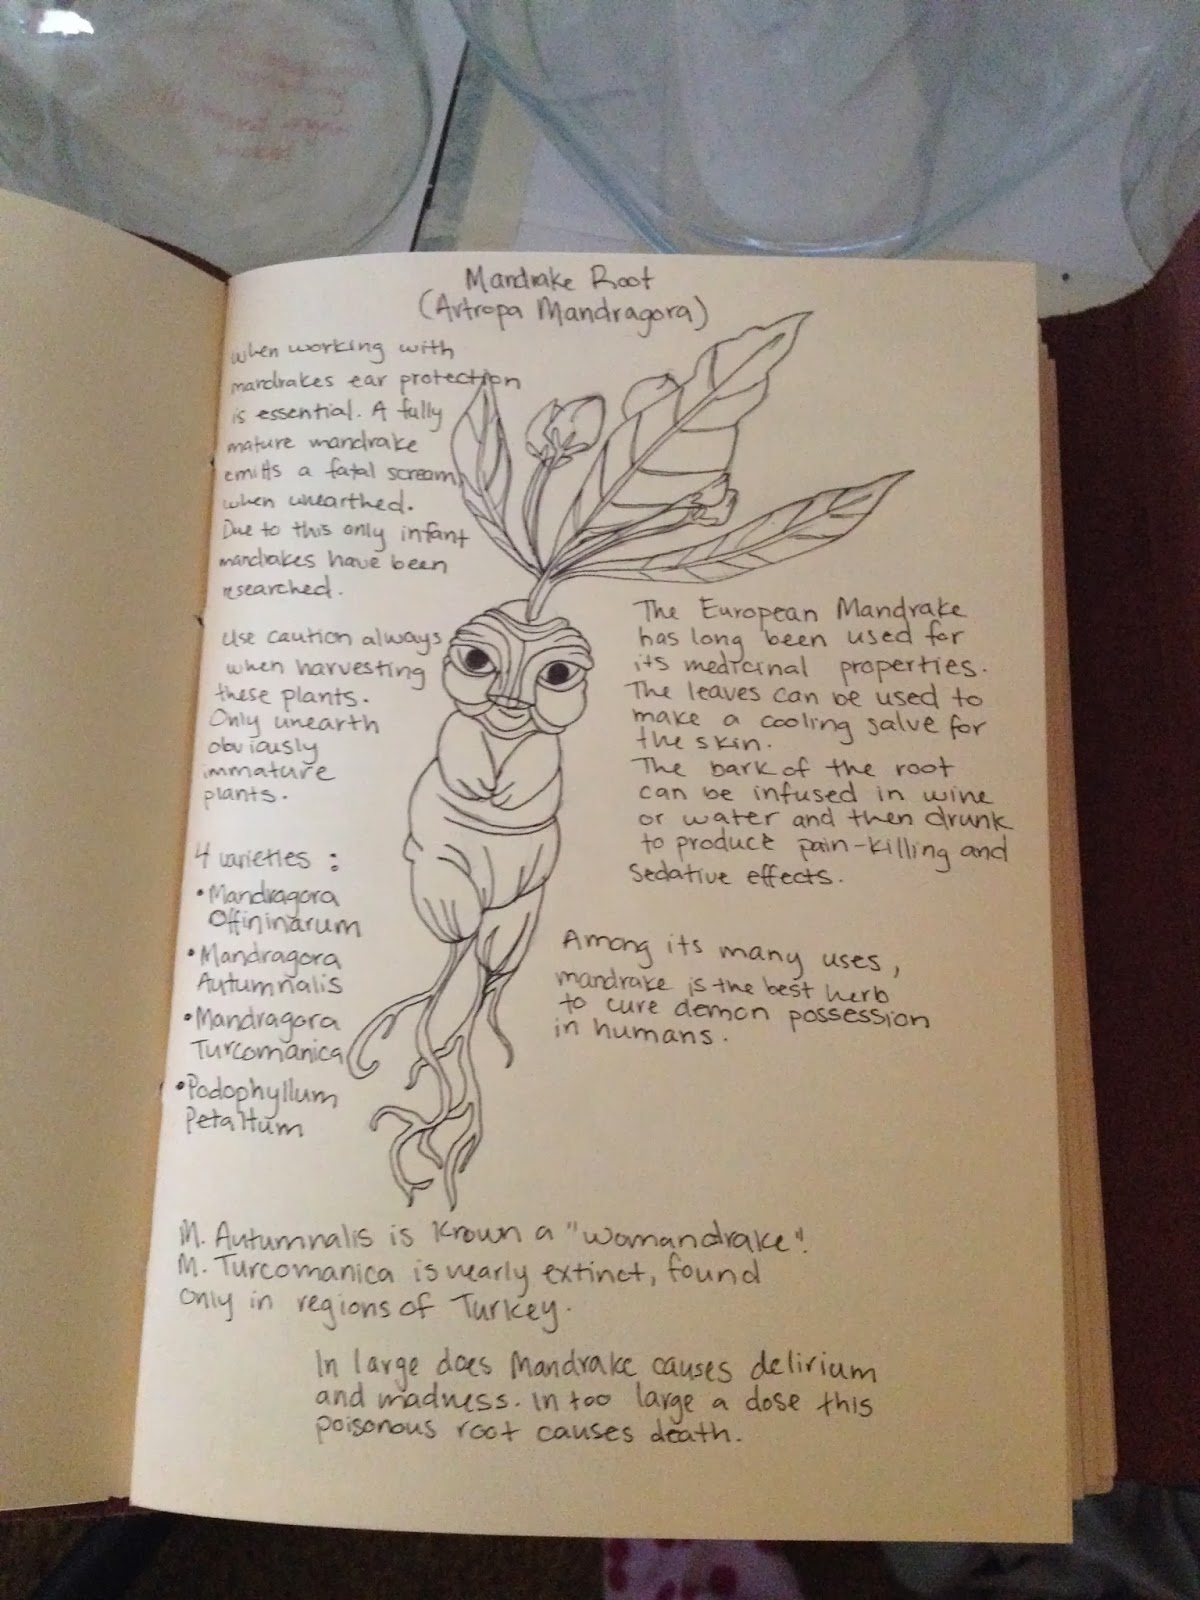 Mandrake Root
(Artropa Mandragora)
When working with
mandrakes ear protection
is essential. A fully
mature mandrake
emitts a fatal scream
when unearthed.
Due to this only infant
mandrakes have been
researched.
Use caution always
when harvesting
these plants.
Only unearth
obviously
immature
plants.
4 varieties :
• Mandragora
Offininarum
• Mandragora
Autumnalis
• Mandragora
Turcomanica
• Podophyllum
Petaltum
The European Mandrake
has long been used for
its medicinal properties.
The leaves can be used to
make a cooling salve for
the skin.
The bark of the root
can be infused in wine
or water and then drunk
to produce pain-killing and
sedative effects.
Among its many uses,
mandrake is the best herb
to cure demon possession
in humans.
M. Autumnalis is known a "womandrake".
M. Turcomanica is nearly extinct, found
only in regions of Turkey.
In large does Mandrake causes delirium
and madness. In too large a dose this
poisonous root causes death.